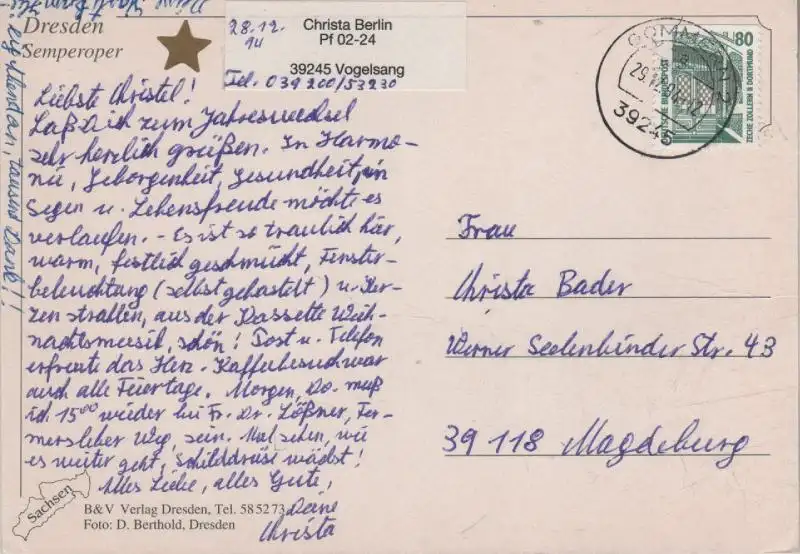 Dresden
Semperoper
28.12.
Christa Berlin
Pf 02-24
39245 Vogelsang
Tel. 039200/53230
80
DEUTSCHE BUNDESPOST
ZECHE ZOLLERN II DORTMUND
39245
Liebste Christel!
Laß Dich zum Jahreswechsel
sehr herzlich grüßen. In Harmo-
nie, Geborgenheit, Gesundheit, in
Segen u. Lebensfreude möchte es
verlaufen. - Es ist so traulich hier,
warm, festlich geschmückt, Fenster-
beleuchtung (selbst gebastelt) u. Ker-
zen strahlen, aus der Kassette Weih-
nachtsmusik, schön! Post u. Telefon
erfreute das Herz. Kaffeebesuch war
auch alle Feiertage. Morgen, Do. muß
ich 15⁰⁰ wieder bei Fr. Dr. Lößner, Fer-
mersleber Weg, sein. Mal sehen, wie
es weiter geht, Schilddrüse wächst!
Alles Liebe, alles Gute,
Deine
Christa
tausend Dank!!
Frau
Christa Bader
Werner Seelenbinder Str. 43
39118 Magdeburg
Sachsen
B&V Verlag Dresden, Tel. 585273
Foto: D. Berthold, Dresden